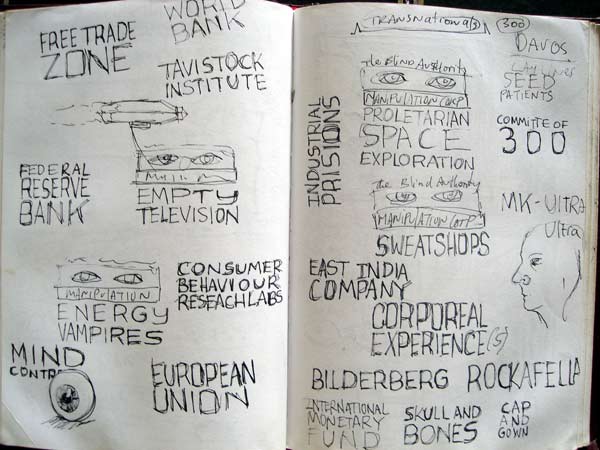 WORLD
BANK
FREE TRADE
ZONE
TAVISTOCK
INSTITUTE
FEDERAL
RESERVE
BANK
EMPTY
TELEVISION
MANIPULATION
ENERGY
VAMPIRES
CONSUMER
BEHAVIOUR
RESEACH LABS
MIND
CONTRO
EUROPEAN
UNION
TRANSNATIONAL(S) (300)
DAVOS
The Blind Authority
MANIPULATION CORP
PROLETARIAN
SPACE
EXPLORATION
SEED
PATIENTS
COMMITTE OF
300
INDUSTRIAL
PRISIONS
The Blind Authority
MANIPULATION CORP
SWEATSHOPS
MK-UltRA
Ultra
EAST INDIA
COMPANY
CORPOREAL
EXPERIENCE(S)
BILDERBERG ROCKAFELLA
INTERNATIONAL
MONETARY
FUND
SKULL AND
BONES
CAP
AND
GOWN